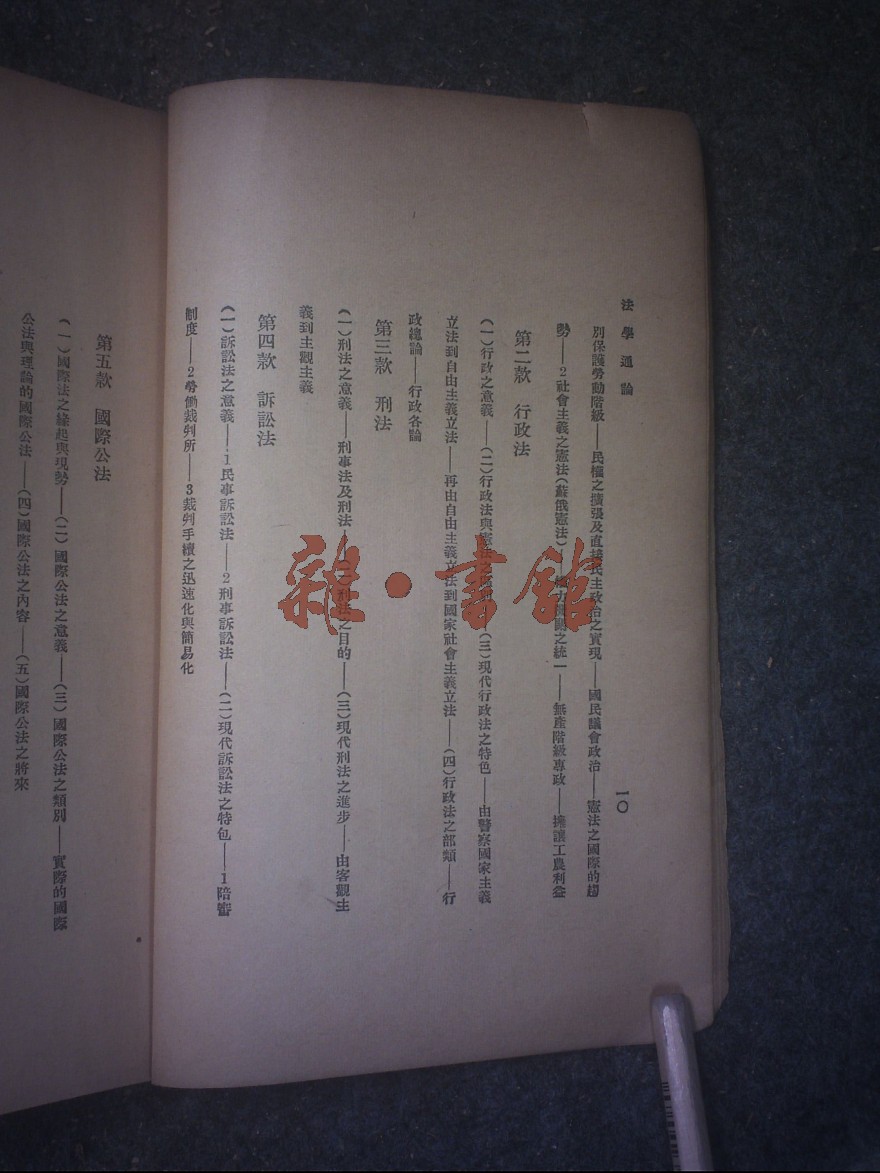 法學通論
一〇
別保護勞動階級——民權之擴張及直接民主政治之實現——國民議會政治——憲法之國際的趨
勢——2社會主義之憲法(蘇俄憲法)——之統一——無產階級專政——擁護工農利益
第二款 行政法
(一)行政之意義——(二)行政法與憲法之區別——(三)現代行政法之特色——由警察國家主義
立法到自由主義立法——再由自由主義立法到國家社會主義立法——(四)行政法之部類——行
政總論——行政各論
第三款 刑法
(一)刑法之意義——刑事法及刑法——(二)刑法之目的——(三)現代刑法之進步——由客觀主
義到主觀主義
第四款 訴訟法
(一)訴訟法之意義——1民事訴訟法——2刑事訴訟法——(二)現代訴訟法之特色——1陪審
制度——2勞働裁判所——3裁判手續之迅速化與簡易化
第五款 國際公法
(一)國際法之緣起與現勢——(二)國際公法之意義——(三)國際公法之類別——實際的國際
公法與理論的國際公法——(四)國際公法之內容——(五)國際公法之將來
雜·書館